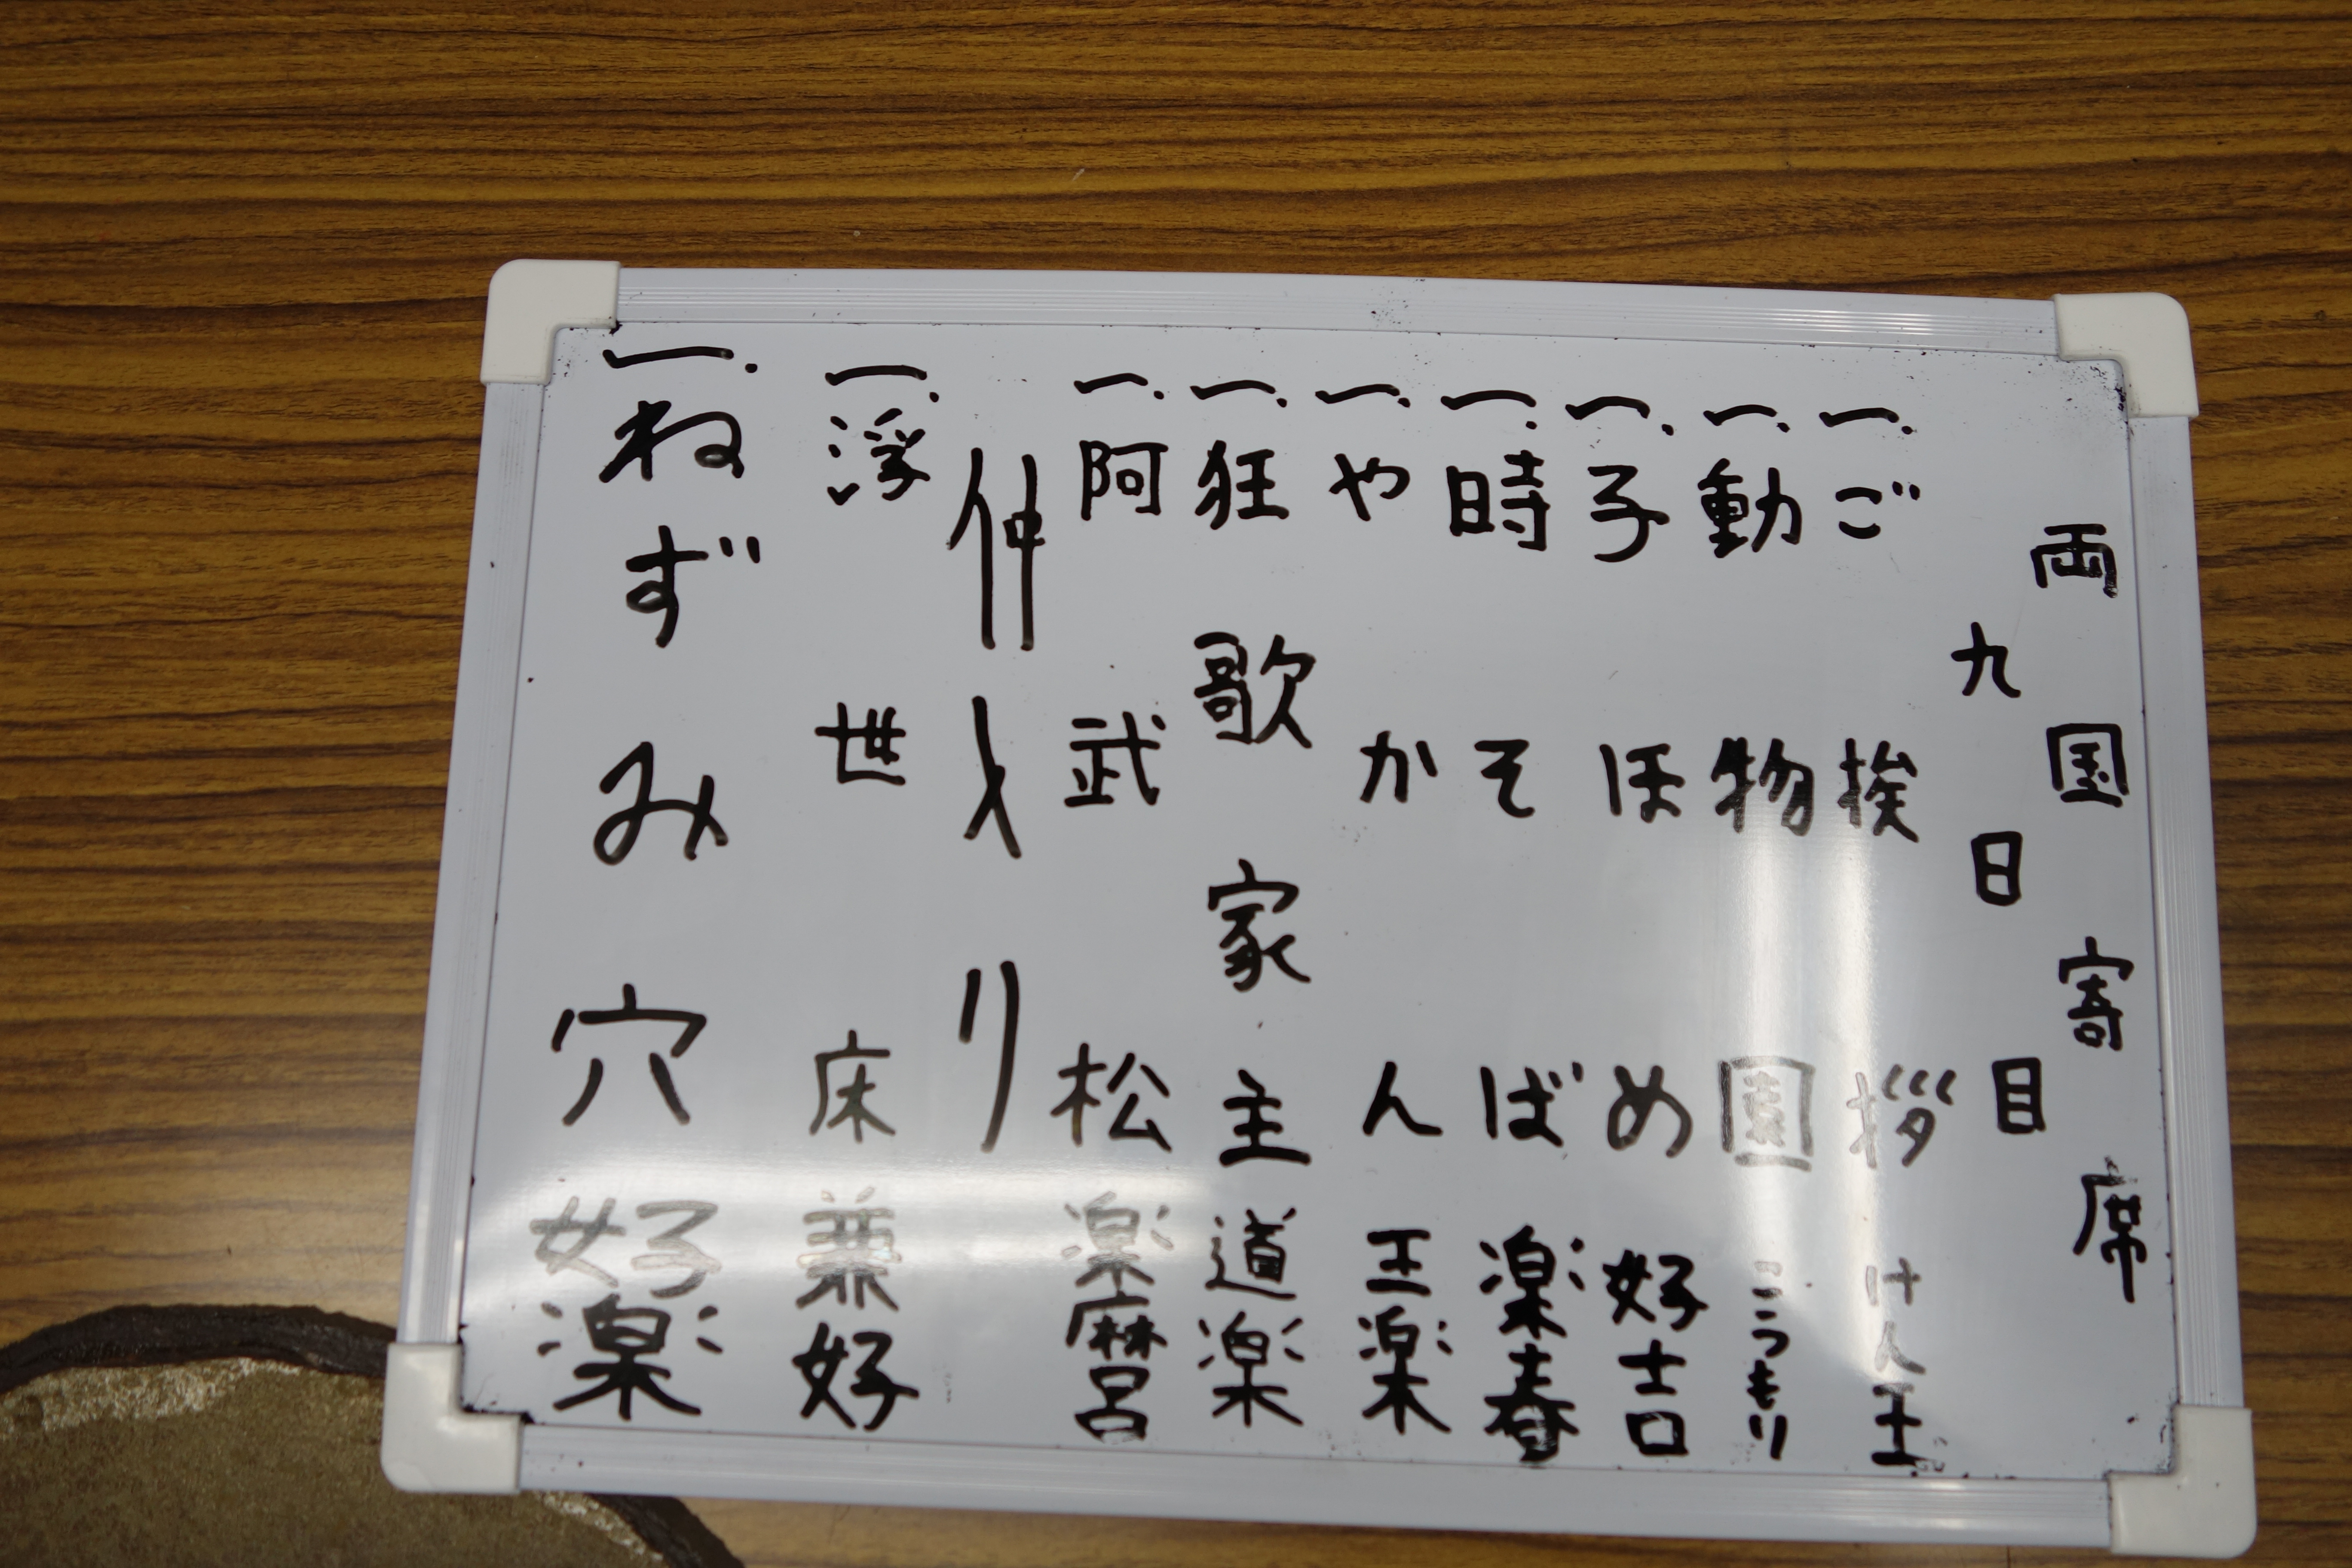 両国寄席
九日目
一、ご挨拶 けん玉
一、動物園 こうもり
一、子ほめ 好吉
一、時そば 楽春
一、やかん 王楽
一、狂歌家主 道楽
一、阿武松 楽麿呂
仲入り
一、浮世床 兼好
一、ねずみ穴 好楽